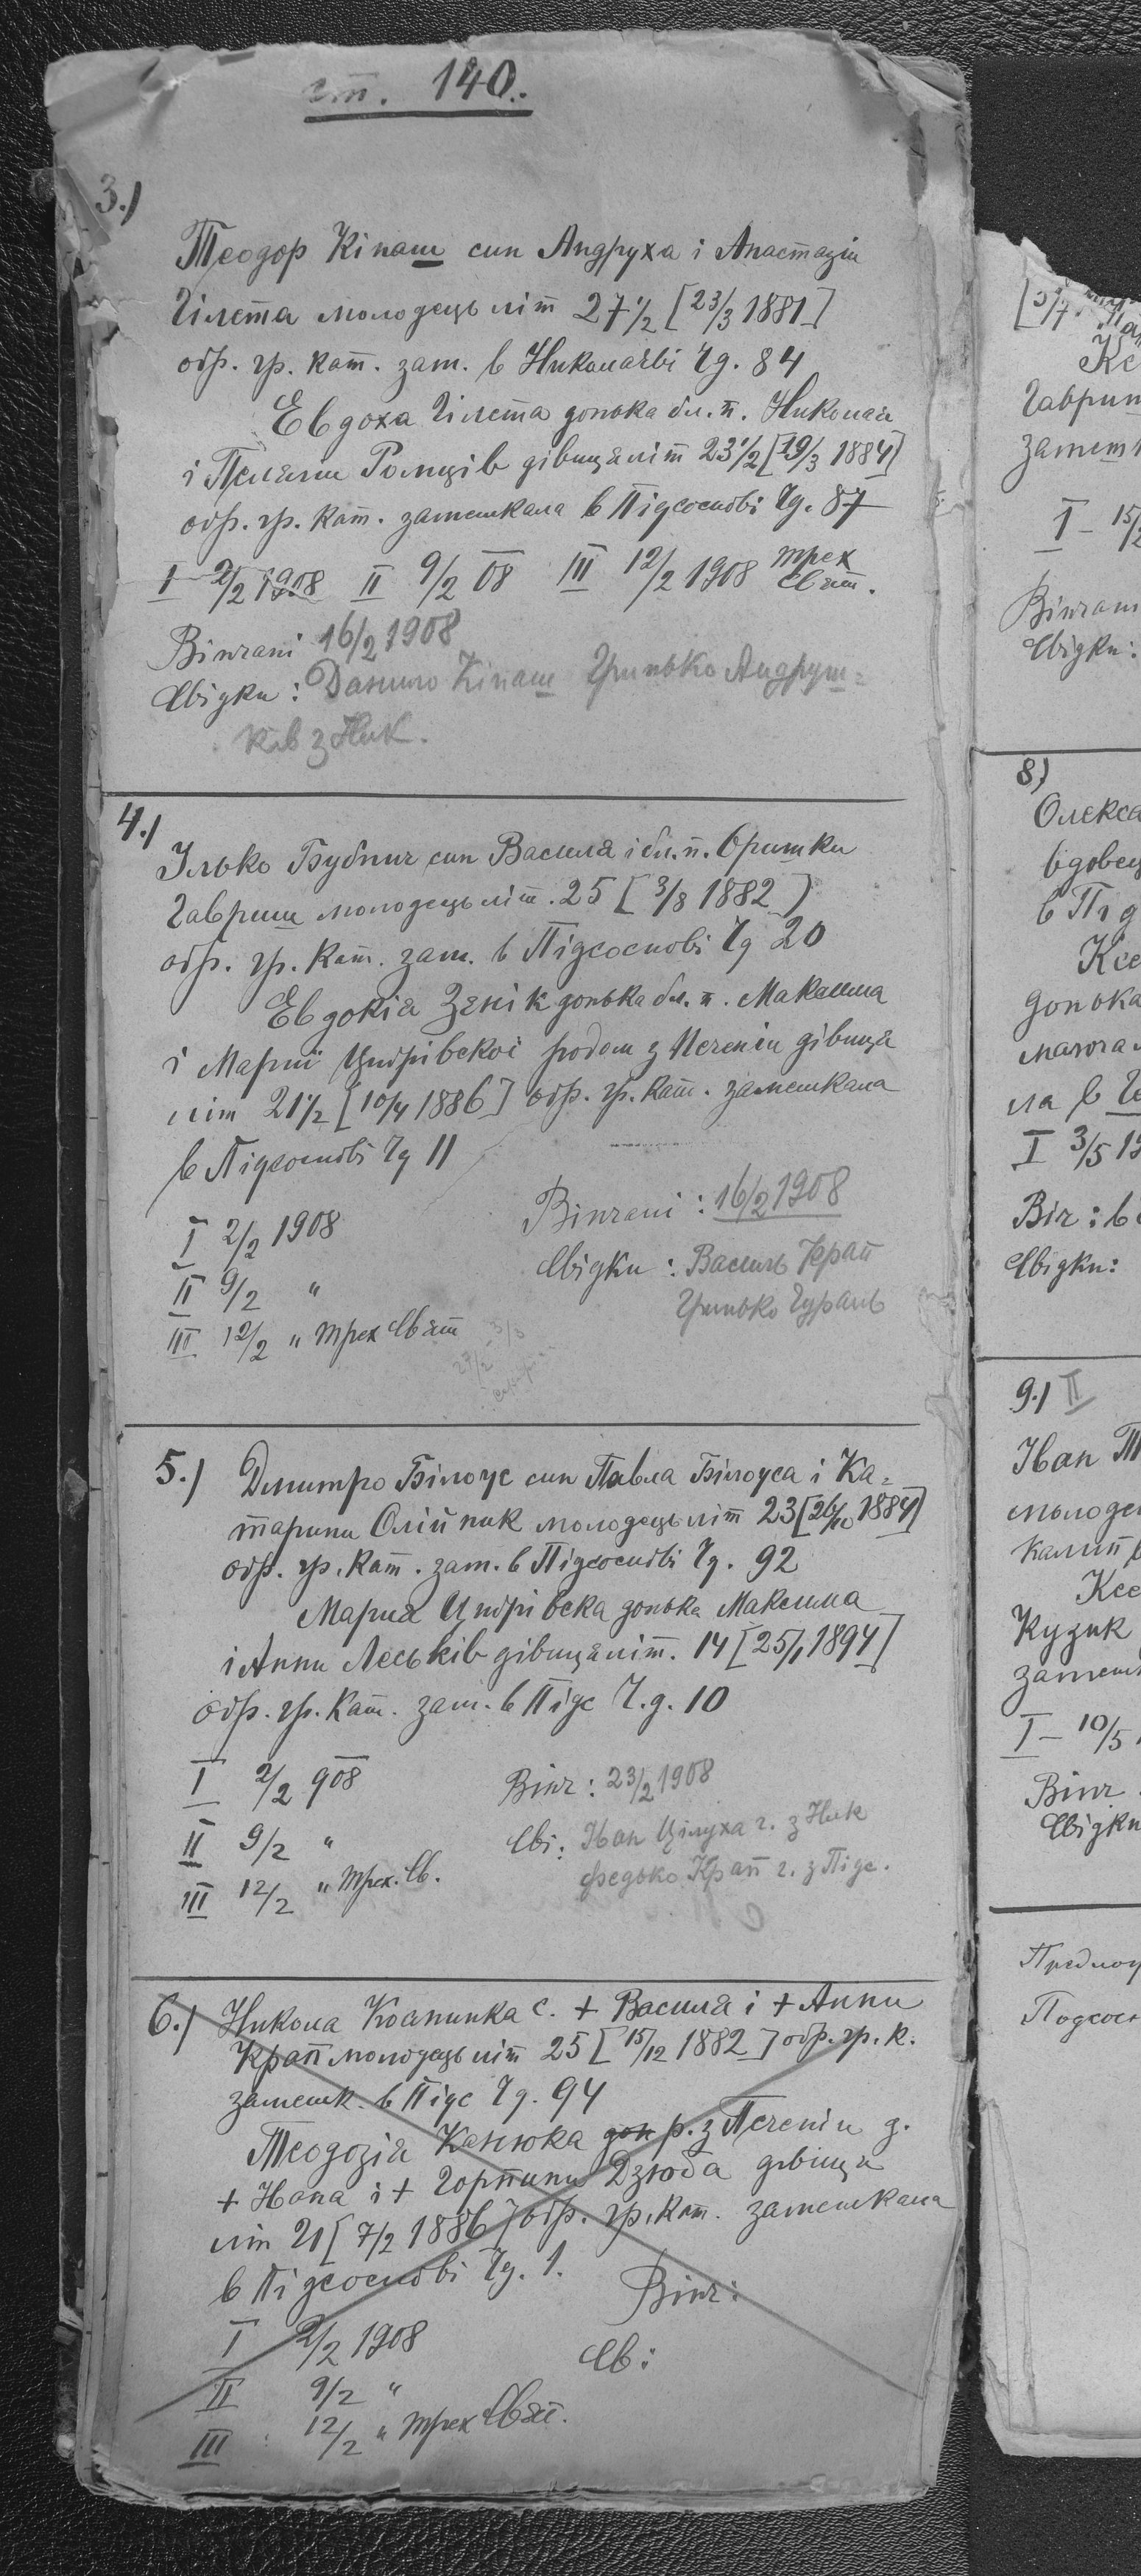 ст. 140.
3.)
Теодор Кіпаш син Андруха і Анастазіи
Гілета молодець літ 27 1/2 [23/3 1881]
обр. гр. кат. зам. в Николаєві Чд. 84
Евдоха Гілета донька бл. п. Николая
і Пелагии Ромців дівиця літ 23 1/2 [19/3 1884]
обр. гр. кат. замешкала в Підсоснові Чд. 87
I 2/2 1908 II 9/2 08 III 12/2 1908 Трех
Свят.
Вінчані 16/2 1908
Свідки: Данило Кіпаш Гринько Андруш=
ків з Ник.
4.)
Ілько Бубнич син Василя і бл. п. Оришки
Гавриш молодець літ. 25 [3/8 1882]
обр. гр. кат. зам. в Підсоснові Чд 20
Евдокія Зенік донька бл. п. Максима
і Мариї Цидрівскої родом з Печенїи дівиця
літ 21 1/2 [10/4 1886] обр. гр. кат. замешкала
в Підсоснові Чд 11
I 2/2 1908
II 9/2 "
III 12/2 " Трех Свят
Вінчані: 16/2 1908
Свідки: Василь Крап
Гринько Гураль
5.)
Дмитро Білоус син Павла Білоуса і Ка=
тарини Олійник молодець літ 23 [26/10 1884]
обр. гр. кат. зам. в Підсоснові Чд. 92
Мария Цидрівска донька Максима
і Анни Леськів дівиця літ. 14 [25/1 1894]
обр. гр. кат. зам. в Підс Ч.д. 10
I 2/2 908
II 9/2 "
III 12/2 " Трех. Св.
Вінч: 23/2 1908
Сві: Іван Цілуха г. з Ник
Федько Крап г. з Підс.
6.)
Никола с. + Василя і + Анни
Крап молодець літ 25 [15/12 1882] обр. гр. к.
замешк. в Підс Чд. 94
Теодозія Канюка дон р. з Печенїи д.
+ Ивана і + Горпини Дзюба дівиця
літ 21 [7/2 1886] обр. гр. кат. замешкала
в Підсоснові Чд. 1.
I 2/2 1908
II 9/2 "
III 12/2 " Трех Свят.
Вінч:
Св:
8)
Олекса
вдовец
в Під
Ксе
донька
ла в
I 3/5
Віч:
Свідки:
9.) II
Іван
молодец
Ксе
Кузик
I - 10/5
Вінч
Свідки